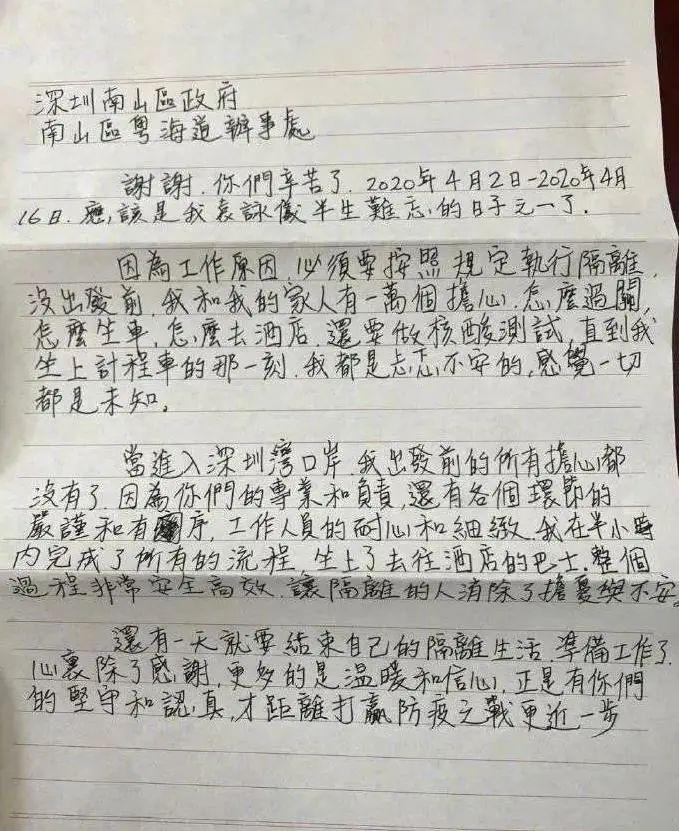 深圳南山區政府
南山區粵海道辦事處
謝謝.你們辛苦了.2020年4月2日-2020年4月
16日.應該是我袁詠儀半生難忘的日子元一了.
因為工作原因.必須要按照規定執行隔離.
沒出發前.我和我的家人有一萬個擔心.怎麼過關,
怎麼坐車,怎麼去酒店.還要做核酸測試,直到我
坐上計程車的那一刻.我都是忐忑不安的,感覺一切
都是未知。
當進入深圳灣口岸.我出發前的所有擔心都
沒有了.因為你們的專業和負責,還有各個環節的
嚴謹和有序,工作人員的耐心和細緻.我在半小時
內完成了所有的流程,坐上了去往酒店的巴士.整個
過程非常安全高效.讓隔離的人消除了擔憂與不安。
還有一天就要結束自己的隔離生活.準備工作了.
心裏除了感謝,更多的是溫暖和信心,正是有你們
的堅守和認真,才距離打贏防疫之戰更近一步